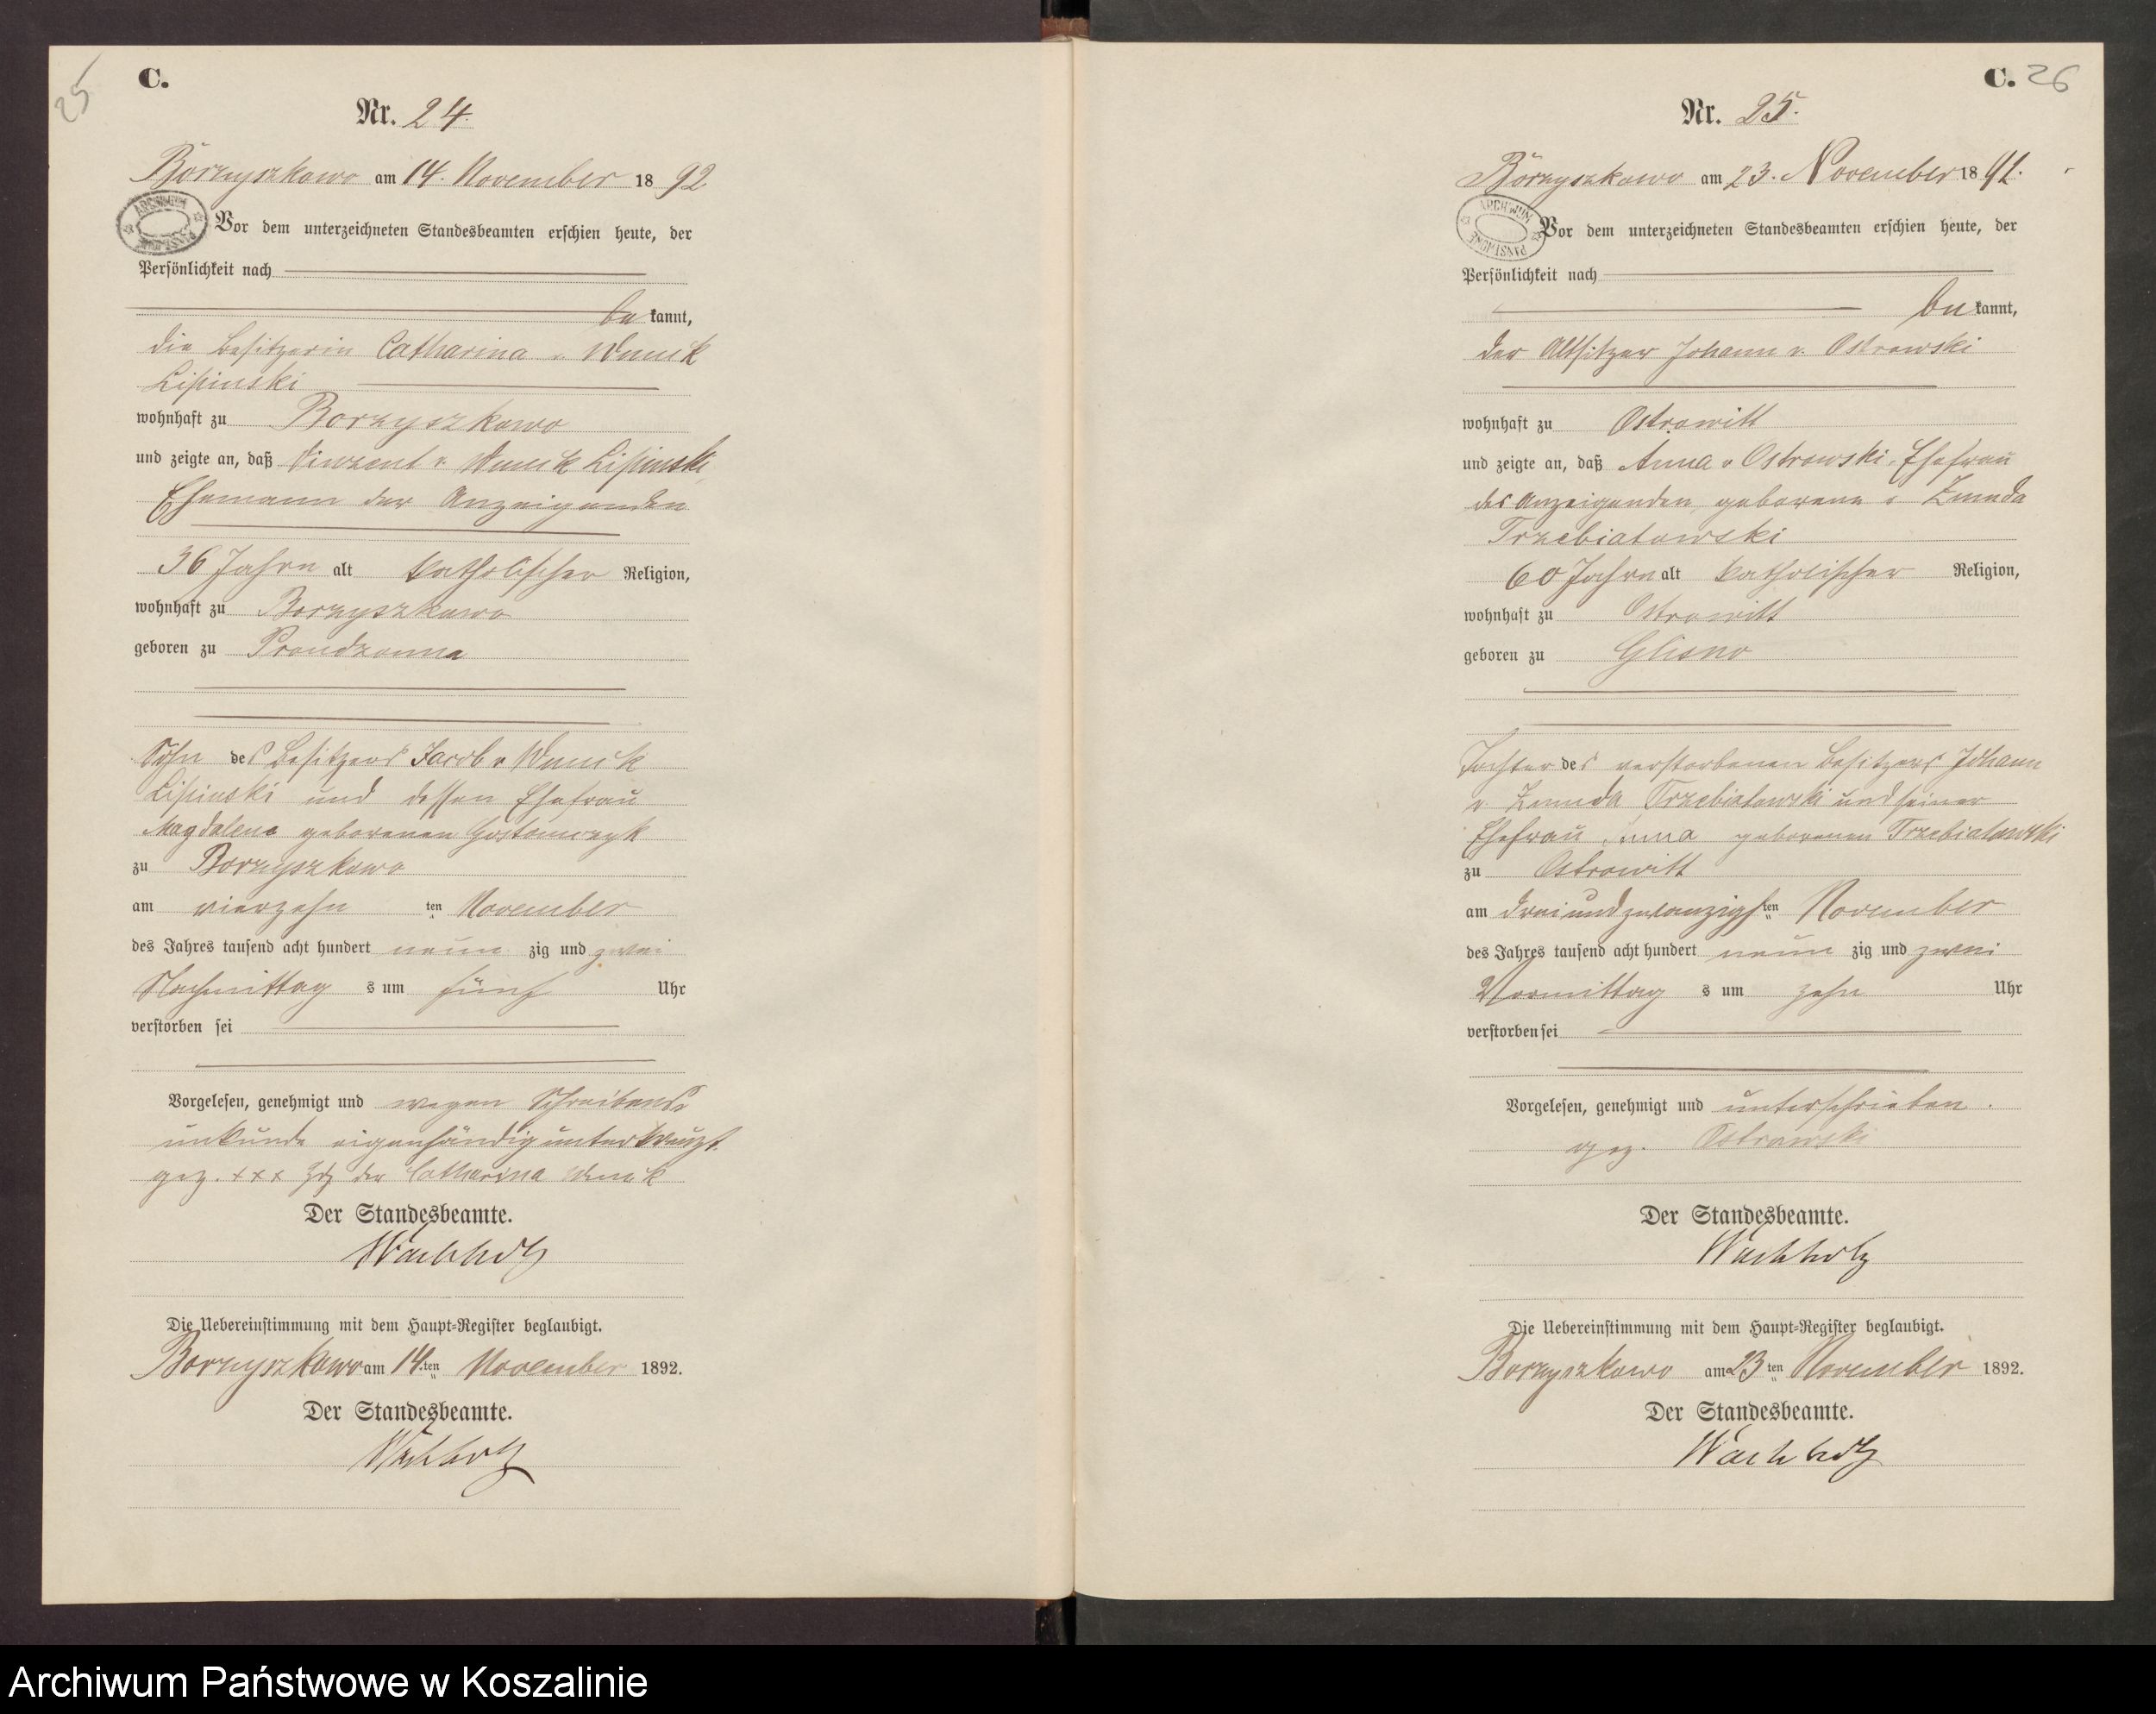 25
C.
Nr. 24.
Borzyszkowo am 14. November 1892
ARCHIWUM PAŃSTWOWE
Vor dem unterzeichneten Standesbeamten erschien heute, der
Persönlichkeit nach
bekannt,
die Besitzerin Catharina v. Wnuck
Lipinski
wohnhaft zu Borzyszkowo
und zeigte an, daß Vinzent v. Wnuck Lipinski,
Ehemann der Anzeigenden
36 Jahre alt katholischer Religion,
wohnhaft zu Borzyszkowo
geboren zu Prondzonna
Sohn des Besitzers Jacob v Wnuck
Lipinski und dessen Ehefrau
Magdalena geborenen Gostomczyk
zu Borzyszkowo
am vierzehn ten November
des Jahres tausend acht hundert neun zig und zwei
Nachmittag s um fünf Uhr
verstorben sei
Vorgelesen, genehmigt und wegen Schreibens
unkunde eigenhändig unterkreuzt.
gez. +++ Hdz der Catharina Wnuck
Der Standesbeamte.
Wachholz
Die Uebereinstimmung mit dem Haupt-Register beglaubigt.
Borzyszkowo am 14.ten November 1892.
Der Standesbeamte.
Wachholz
C. 26
Nr. 25.
Borzyszkowo am 23. November 1892.
ARCHIWUM PAŃSTWOWE
Vor dem unterzeichneten Standesbeamten erschien heute, der
Persönlichkeit nach
bekannt,
der Altsitzer Johann v. Ostrowski
wohnhaft zu Ostrowitt
und zeigte an, daß Anna v Ostrowski, Ehefrau
des Anzeigenden, geborene v Zmuda
Trzebiatowski
60 Jahre alt katholischer Religion,
wohnhaft zu Ostrowitt
geboren zu Glisno
Tochter des verstorbenen Besitzers Johann
v. Zmuda Trzebiatowski und seiner
Ehefrau Anna geborenen Trzebiatowski
zu Ostrowitt
am dreiundzwanzigsten November
des Jahres tausend acht hundert neun zig und zwei
Vormittag s um zehn Uhr
verstorben sei
Vorgelesen, genehmigt und unterschrieben.
gez. Ostrowski
Der Standesbeamte.
Wachholz
Die Uebereinstimmung mit dem Haupt-Register beglaubigt.
Borzyszkowo am 23 ten November 1892.
Der Standesbeamte.
Wachholz
Archiwum Państwowe w Koszalinie